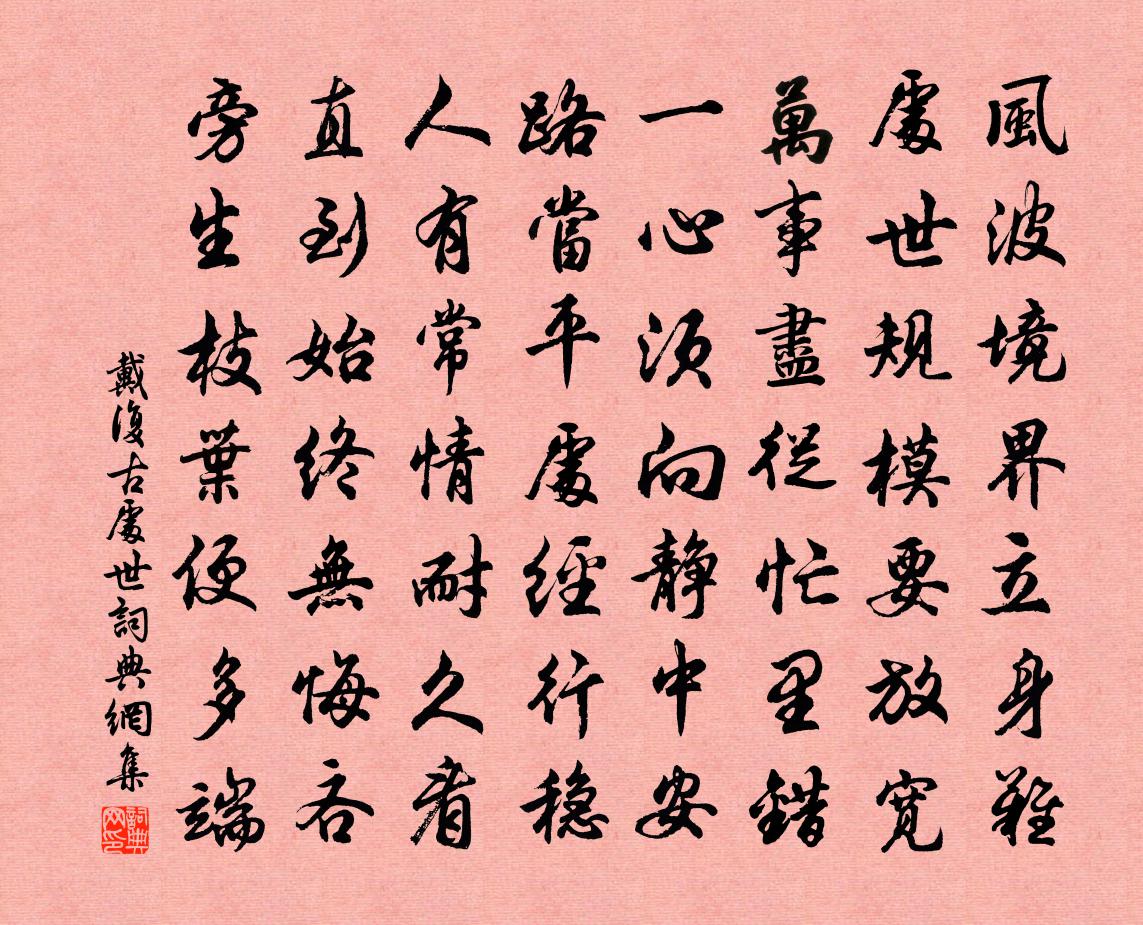 風波境界立身難
處世規模要放寬
萬事盡從忙里錯
一心須向靜中安
路當平處經行穩
人有常情耐久看
直到始終無悔吝
旁生枝葉便多端
戴復古處世詞典網集
詞典網印